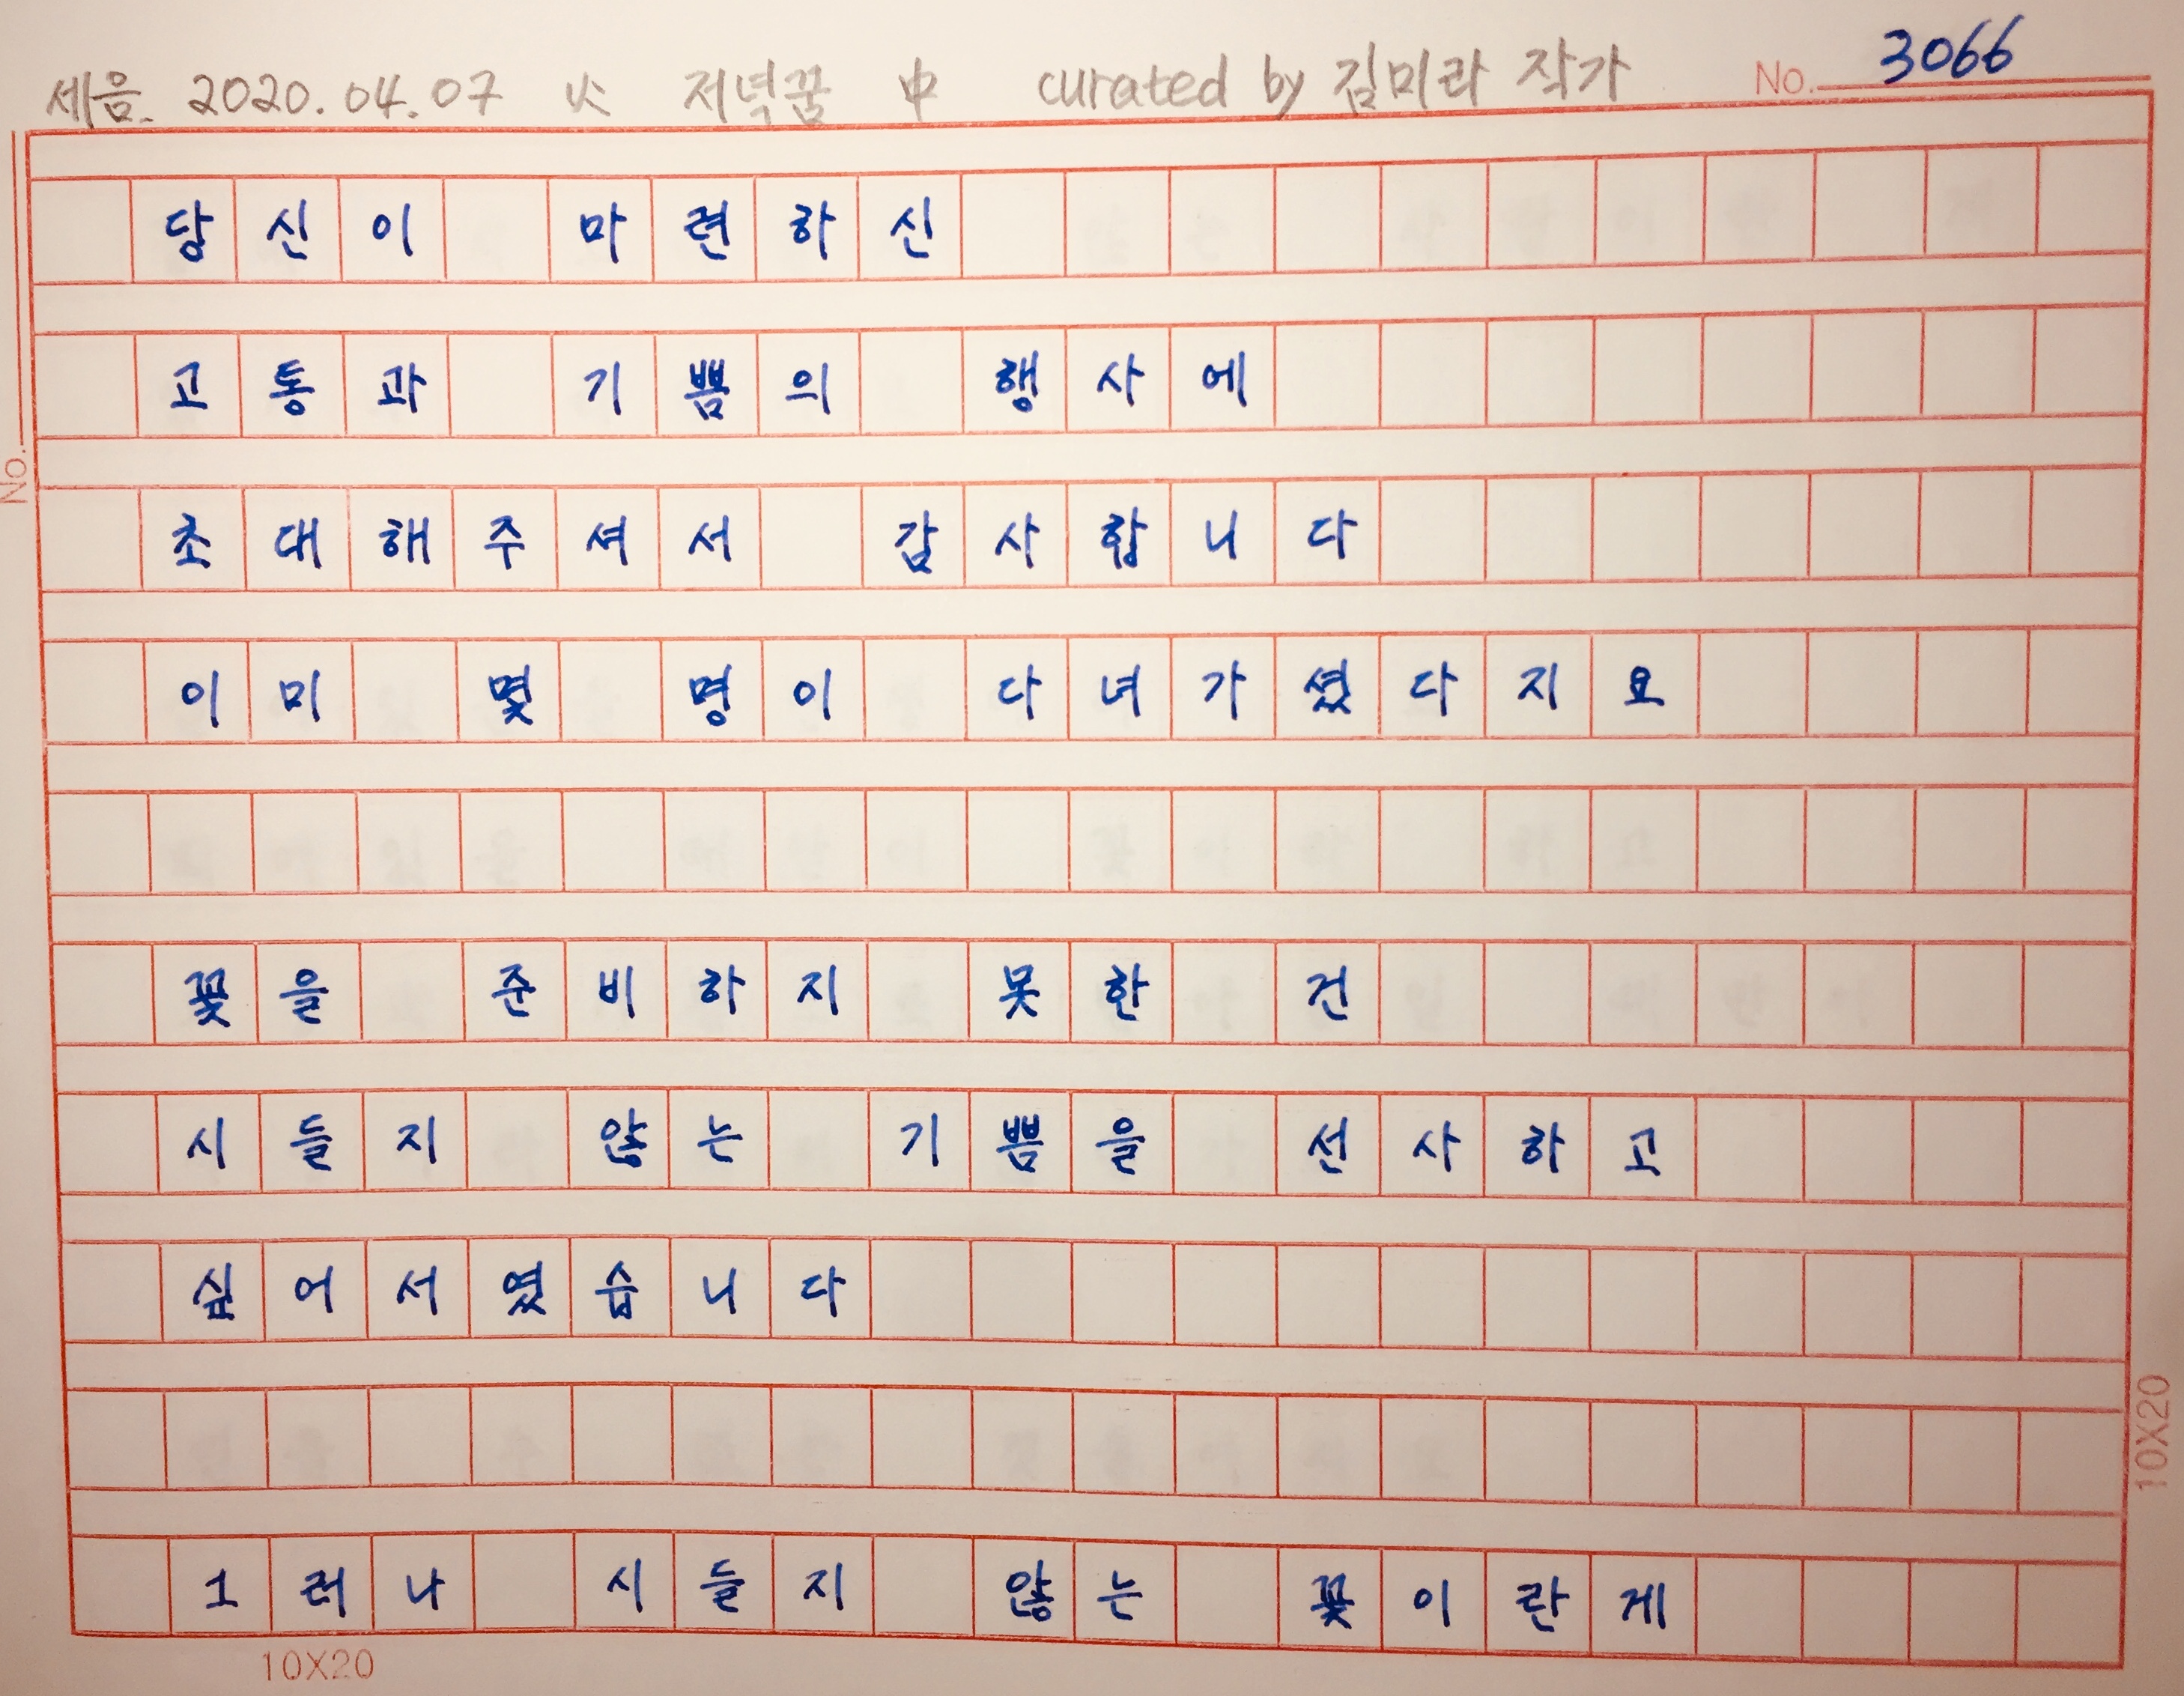 세음. 2020.04.07 火 저녁꿈 中 curated by 김미라 작가 No. 3066
당신이 마련하신
고통과 기쁨의 행사에
초대해주셔서 감사합니다
이미 몇 명이 다녀가셨다지요
꽃을 준비하지 못한 건
시들지 않는 기쁨을 선사하고
싶어서였습니다
그러나 시들지 않는 꽃이란게
No.
10X20
10X20